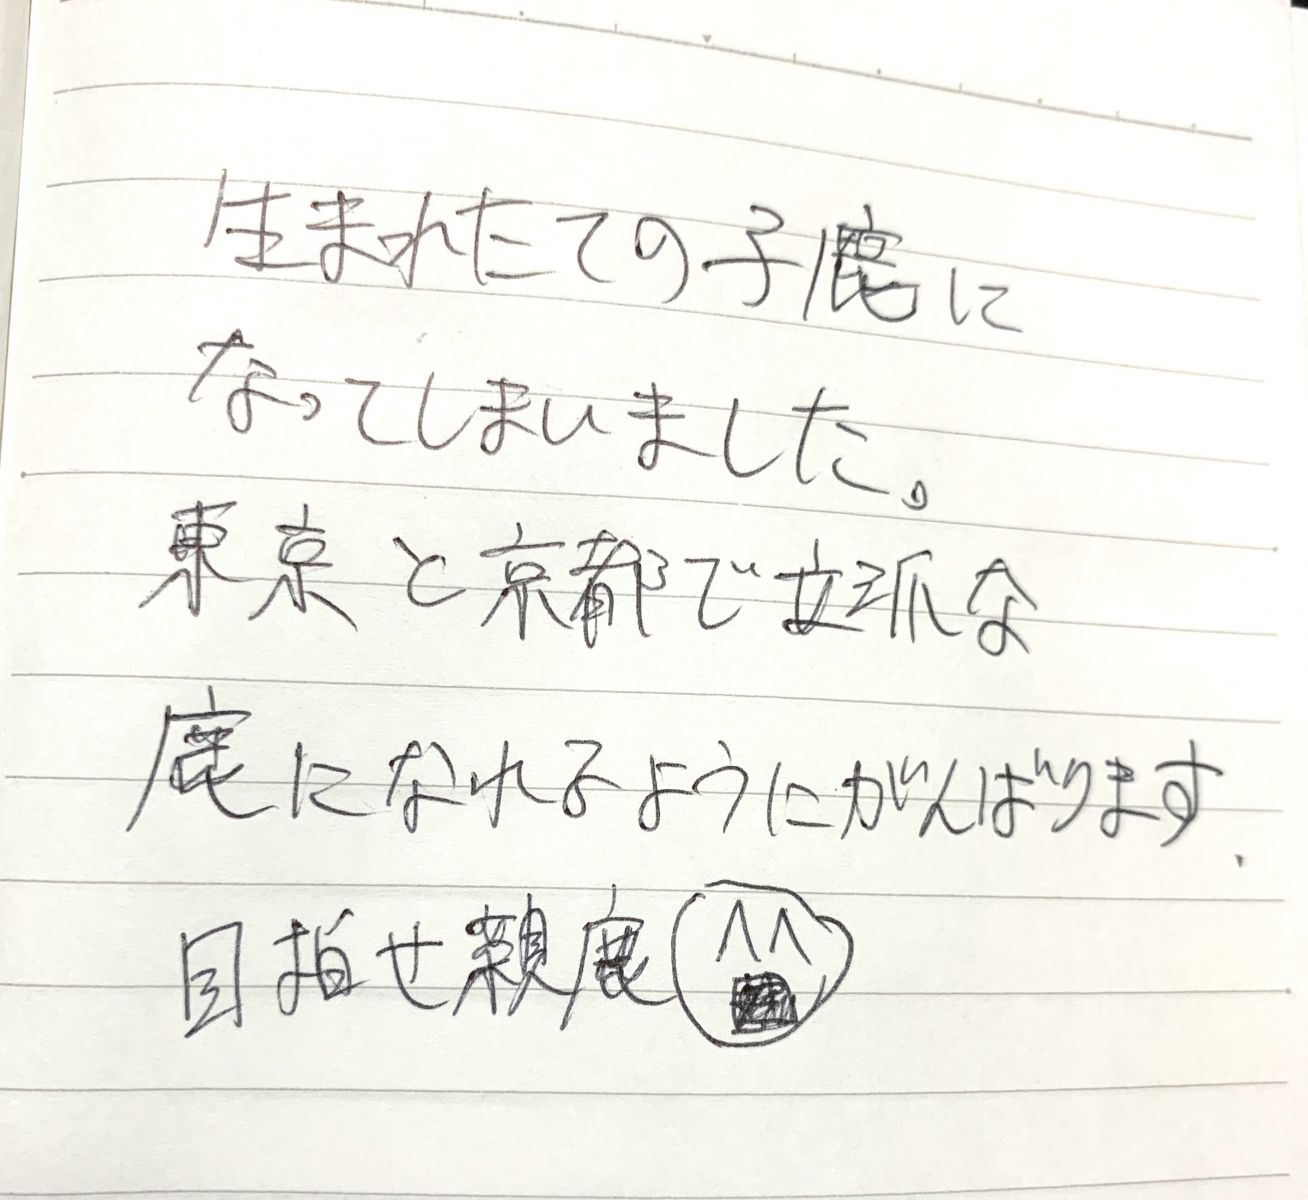 生まれたての子鹿に
なってしまいました。
東京と京都で立派な
鹿になれるようにがんばります.
目指せ親鹿